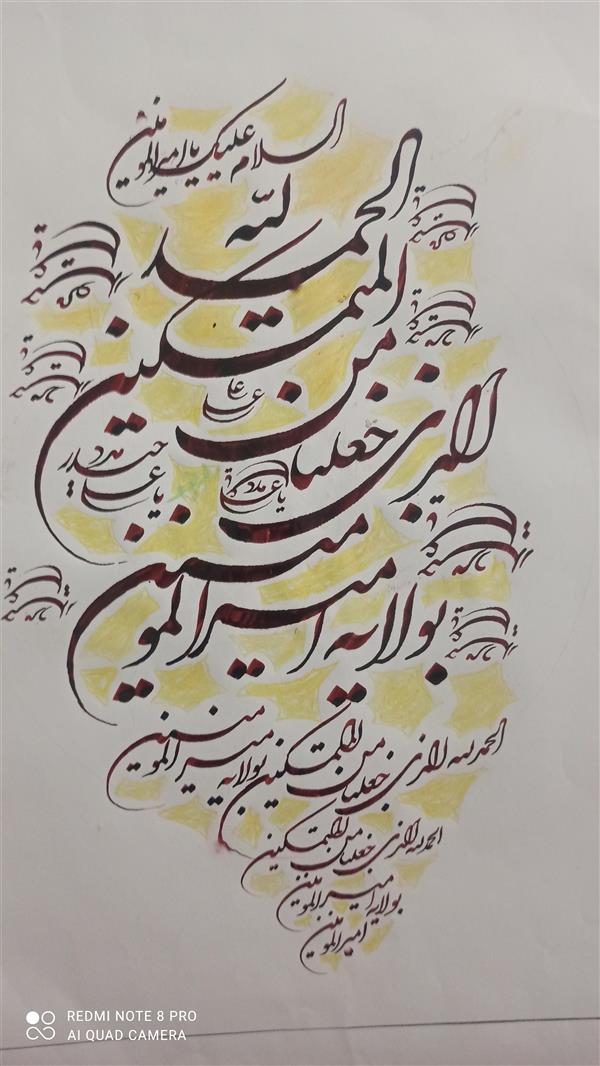 السلام علیک یا امیرالمومنین
الحمد لله
الذی جعلنا من المتمسکین
علی
حیدر مدد
یا علی
یا علی مدد
بولایه امیرالمومنین
الحمدلله الذی جعلنا من المتمسکین بولایه امیرالمومنین
الحمدلله الذی جعلنا من المتمسکین
بولایه امیرالمومنین
امیرالمومنین
REDMI NOTE 8 PRO
AI QUAD CAMERA